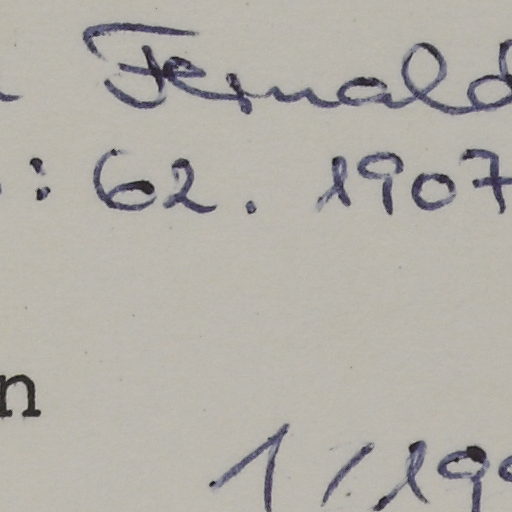 Fernald
: 62. 1907
n
1/.199